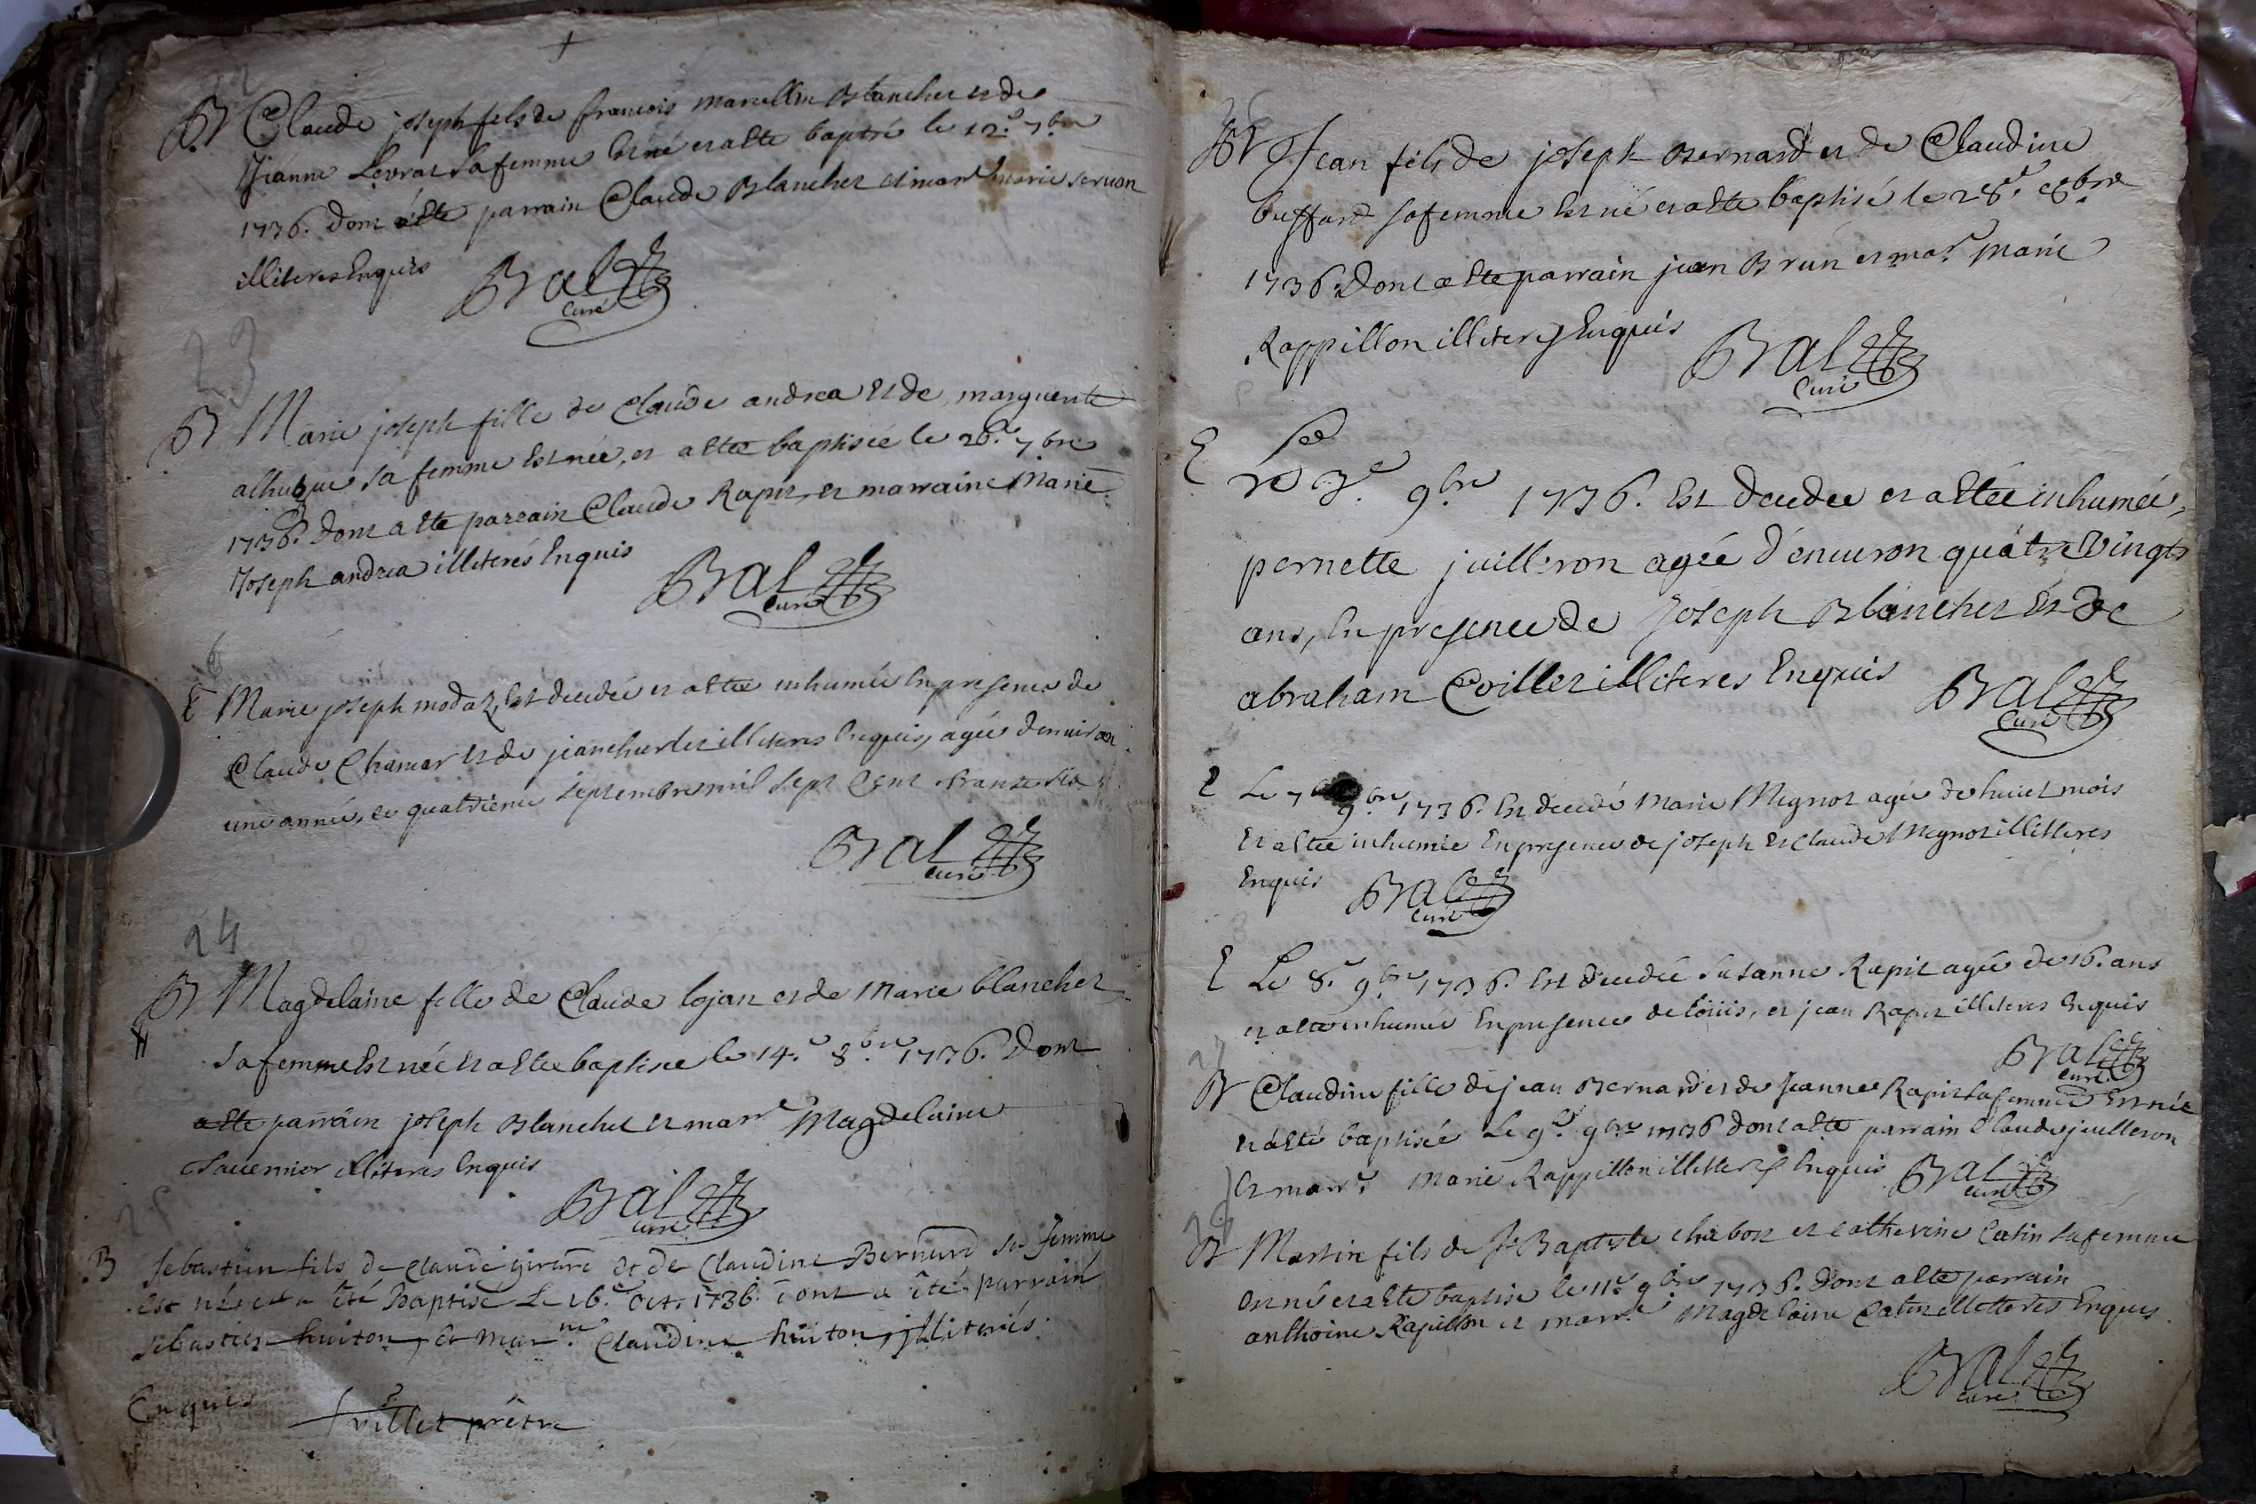 22
B Claude joseph fils de francois marcellin Blanchet et de
Jeanne Levrat sa femme est né et a esté baptisé le 12.e 7.bre
1736. dont a esté parrain Claude Blanchet et mar.e marie servan
illiteres Enquis
Bal
curé
23
B Marie joseph fille de Claude andrea et de marguerite
sa femme est née, et a estée baptisée le 26.e 7.bre
1736. dont a esté parrain Claude Rapit, et marraine Marie
Joseph andrea illiterés Enquis
Bal
curé
6
E Marie joseph modaz, Est decedée et a estée inhumée En presence de
Claude Chamar et de illiteres Enquis, agée d'environ
une année, ce septembre mil sept cent trante six
Bal
curé
24
B Magdelaine fille de Claude lojan et de Marie blanchet
sa femme Est née Et a estée baptisée le 14.e 8.bre 1736. Dont
a esté parrain joseph Blanchet et marr.e Magdelaine
illiteres Enquis
Bal
curé
25
B Sebastien fils de Claude girard et de Claudine Bernard sa femme
est né et a été Baptisé Le 16.e oct. 1736. dont a été parrain
sebastien huiton, et mar.ne Claudine huiton, illiterés
Enquis
villet prêtre
26
B Jean fils de joseph Bernard et de Claudine
buffard sa femme Est né et a esté baptisé le 28.e 8.bre
1736. Dont a esté parrain jean Brun et mar.e Marie
Rappillon illiterés Enquis
Bal
curé
E Le 3.e 9.bre 1736. Est decedée et a estée inhumée,
pernette juilleron agée d'environ quatre Vingts
ans, En presence de Joseph Blanchet Et de
abraham Coillet illiteres Enquis
Bal
curé
E Le 7 9.bre 1736. Est decedé Marie Mignot agée de huict mois
Et a estée inhumée En presence de joseph et Claude Mignot illitteres
Enquis
Bal
curé
E Le 8.e 9.bre 1736. Est decedée Susanne Rapit agée de 16. ans
et a esté inhumée En presence de Loüis, et jean Rapit illiteres Enquis
Bal
curé
27
B Claudine fille de jean Bernard et de Jeanne Rapit sa femme Est née
et a esté baptisée Le 9.e 9.bre 1736 dont a esté parrain Claude juilleron
Et marr.e Marie Rappillon illitteres Enquis
Bal
curé
28
B Martin fils de J Baptiste chabot et catherine Catin sa femme
Est né et a esté baptisé le 11.e 9.bre 1736. Dont a esté parrain
anthoine Rapillon et marr.e Magdelaine Catin illitteres Enquis.
Bal
curé